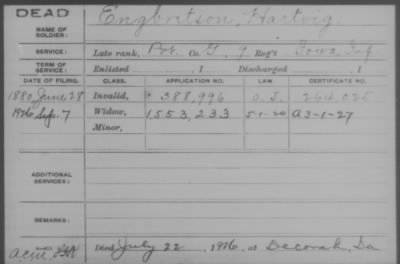 DEAD
NAME OF SOLDIER: Engbertson, Hartvig.
SERVICE: Late rank, Pvt. Co. G, 9 Reg't Iowa Inf.
TERM OF SERVICE: Enlisted , 1 Discharged , 1
DATE OF FILING. CLASS. APPLICATION NO. LAW CERTIFICATE NO.
1880, June 28 Invalid, 388,996 O. L. 264,025
1926 Sep. 7 Widow, 1,553,233 5-1-20 A 3-1-27
Minor,
ADDITIONAL SERVICES:
REMARKS:
Died July 22, 1926, at Decorah, Ia